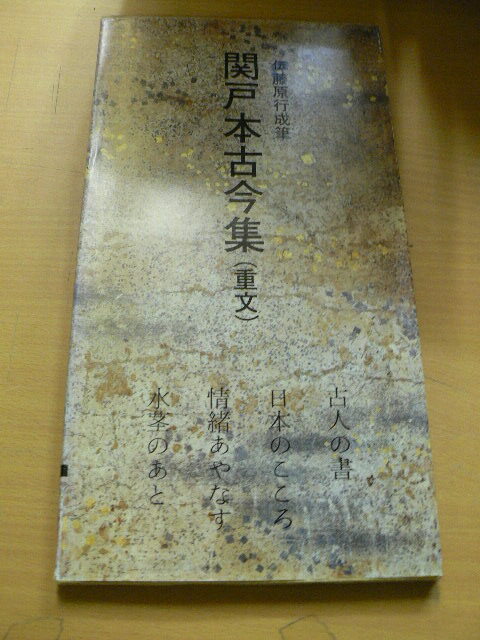 傳藤原行成筆
関戸本古今集(重文)
古人の書
日本のこころ
情緒あやなす
水莖のあと